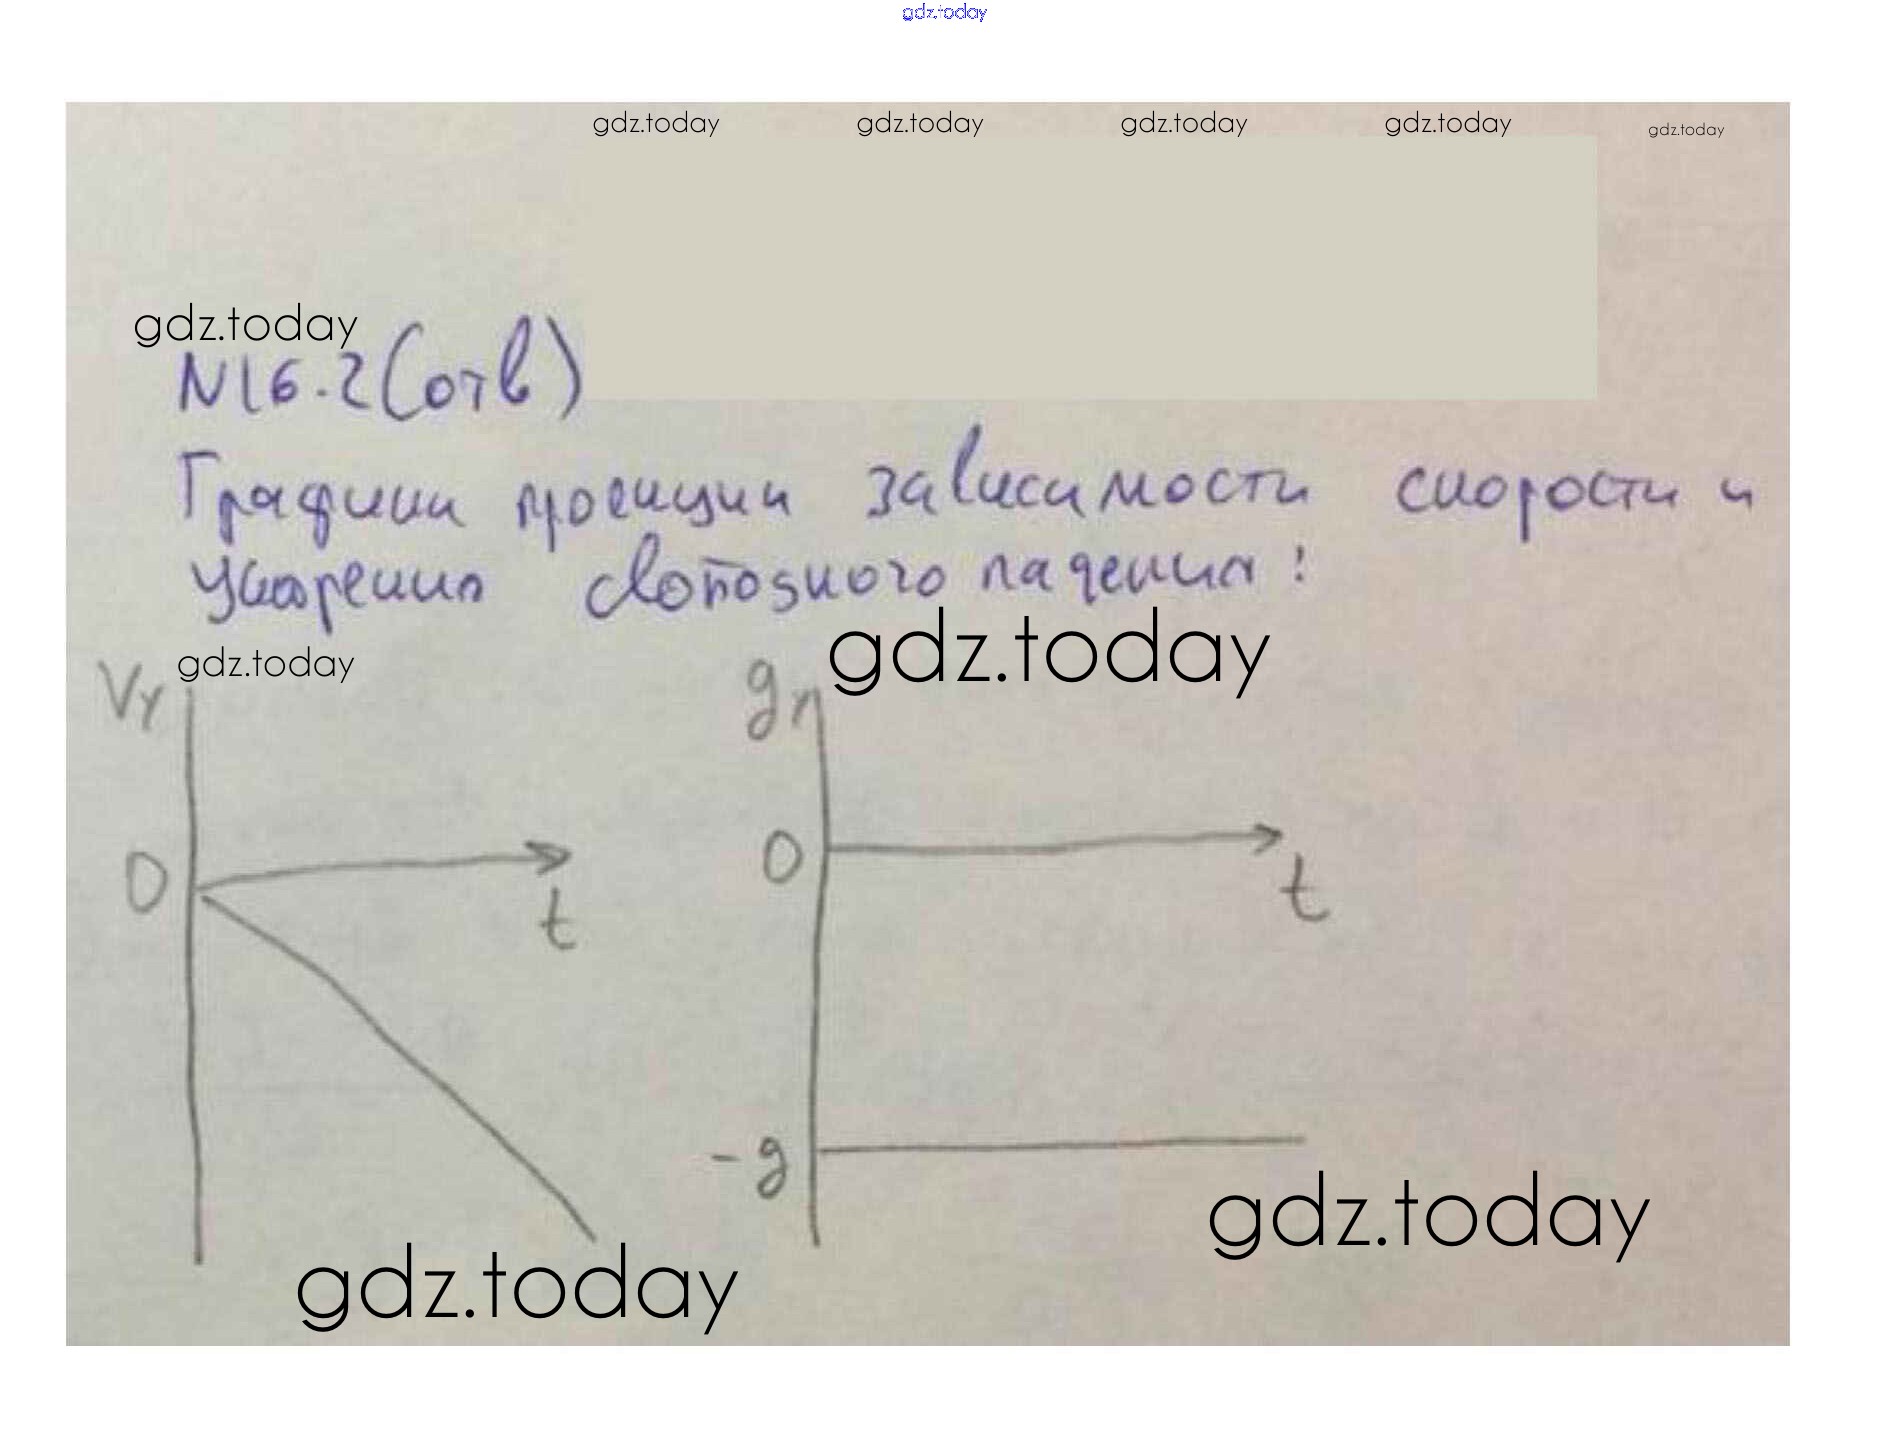 gdz.today
gdz.today gdz.today gdz.today gdz.today gdz.today
gdz.today
N16.2(отв)
Графики проекции зависимости скорости и
ускорения свободного падения:
gdz.today
gdz.today
Vy
gy
0
t
0
t
-g
gdz.today
gdz.today